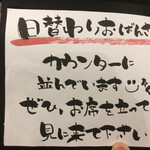 日替わりおばんざ
カウンターに
並んでいます
ぜひ、お席を立って
見に来て下さい